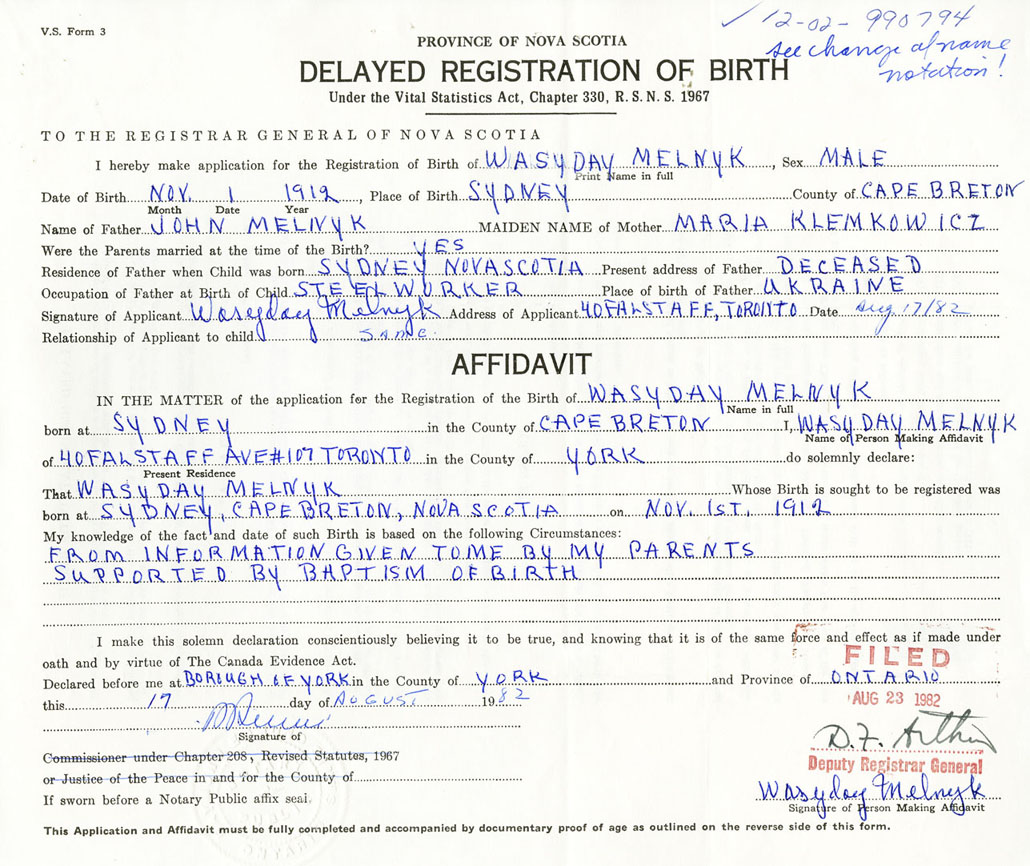 V.S. Form 3
✓ 12-02-990794
see change of name
notation!
PROVINCE OF NOVA SCOTIA
DELAYED REGISTRATION OF BIRTH
Under the Vital Statistics Act, Chapter 330, R.S.N.S. 1967
TO THE REGISTRAR GENERAL OF NOVA SCOTIA
I hereby make application for the Registration of Birth of WASYDAY MELNYK, Sex MALE
Print Name in full
Date of Birth NOV. 1 1912, Place of Birth SYDNEY County of CAPE BRETON
Month Date Year
Name of Father JOHN MELNYK MAIDEN NAME of Mother MARIA KLEMKOWICZ
Were the Parents married at the time of the Birth? YES
Residence of Father when Child was born SYDNEY NOVA SCOTIA Present address of Father DECEASED
Occupation of Father at Birth of Child STEEL WORKER Place of birth of Father UKRAINE
Signature of Applicant Wasyday Melnyk Address of Applicant 40 FALSTAFF, TORONTO Date Aug 17/82
Relationship of Applicant to child SAME
AFFIDAVIT
IN THE MATTER of the application for the Registration of the Birth of WASYDAY MELNYK
Name in full
born at SYDNEY in the County of CAPE BRETON I, WASYDAY MELNYK
Name of Person Making Affidavit
of 40 FALSTAFF AVE #107 TORONTO in the County of YORK do solemnly declare:
Present Residence
That WASYDAY MELNYK Whose Birth is sought to be registered was
born at SYDNEY, CAPE BRETON, NOVA SCOTIA on NOV. 1ST. 1912
My knowledge of the fact and date of such Birth is based on the following Circumstances:
FROM INFORMATION GIVEN TO ME BY MY PARENTS
SUPPORTED BY BAPTISM OF BIRTH
I make this solemn declaration conscientiously believing it to be true, and knowing that it is of the same force and effect as if made under
oath and by virtue of The Canada Evidence Act.
FILED
Declared before me at BOROUGH OF YORK in the County of YORK and Province of ONTARIO
this 17 day of AUGUST 1982
AUG 23 1982
Signature of
D.F. Arthur
Commissioner under Chapter 208, Revised Statutes, 1967
Deputy Registrar General
or Justice of the Peace in and for the County of
Wasyday Melnyk
If sworn before a Notary Public affix seal.
Signature of Person Making Affidavit
This Application and Affidavit must be fully completed and accompanied by documentary proof of age as outlined on the reverse side of this form.